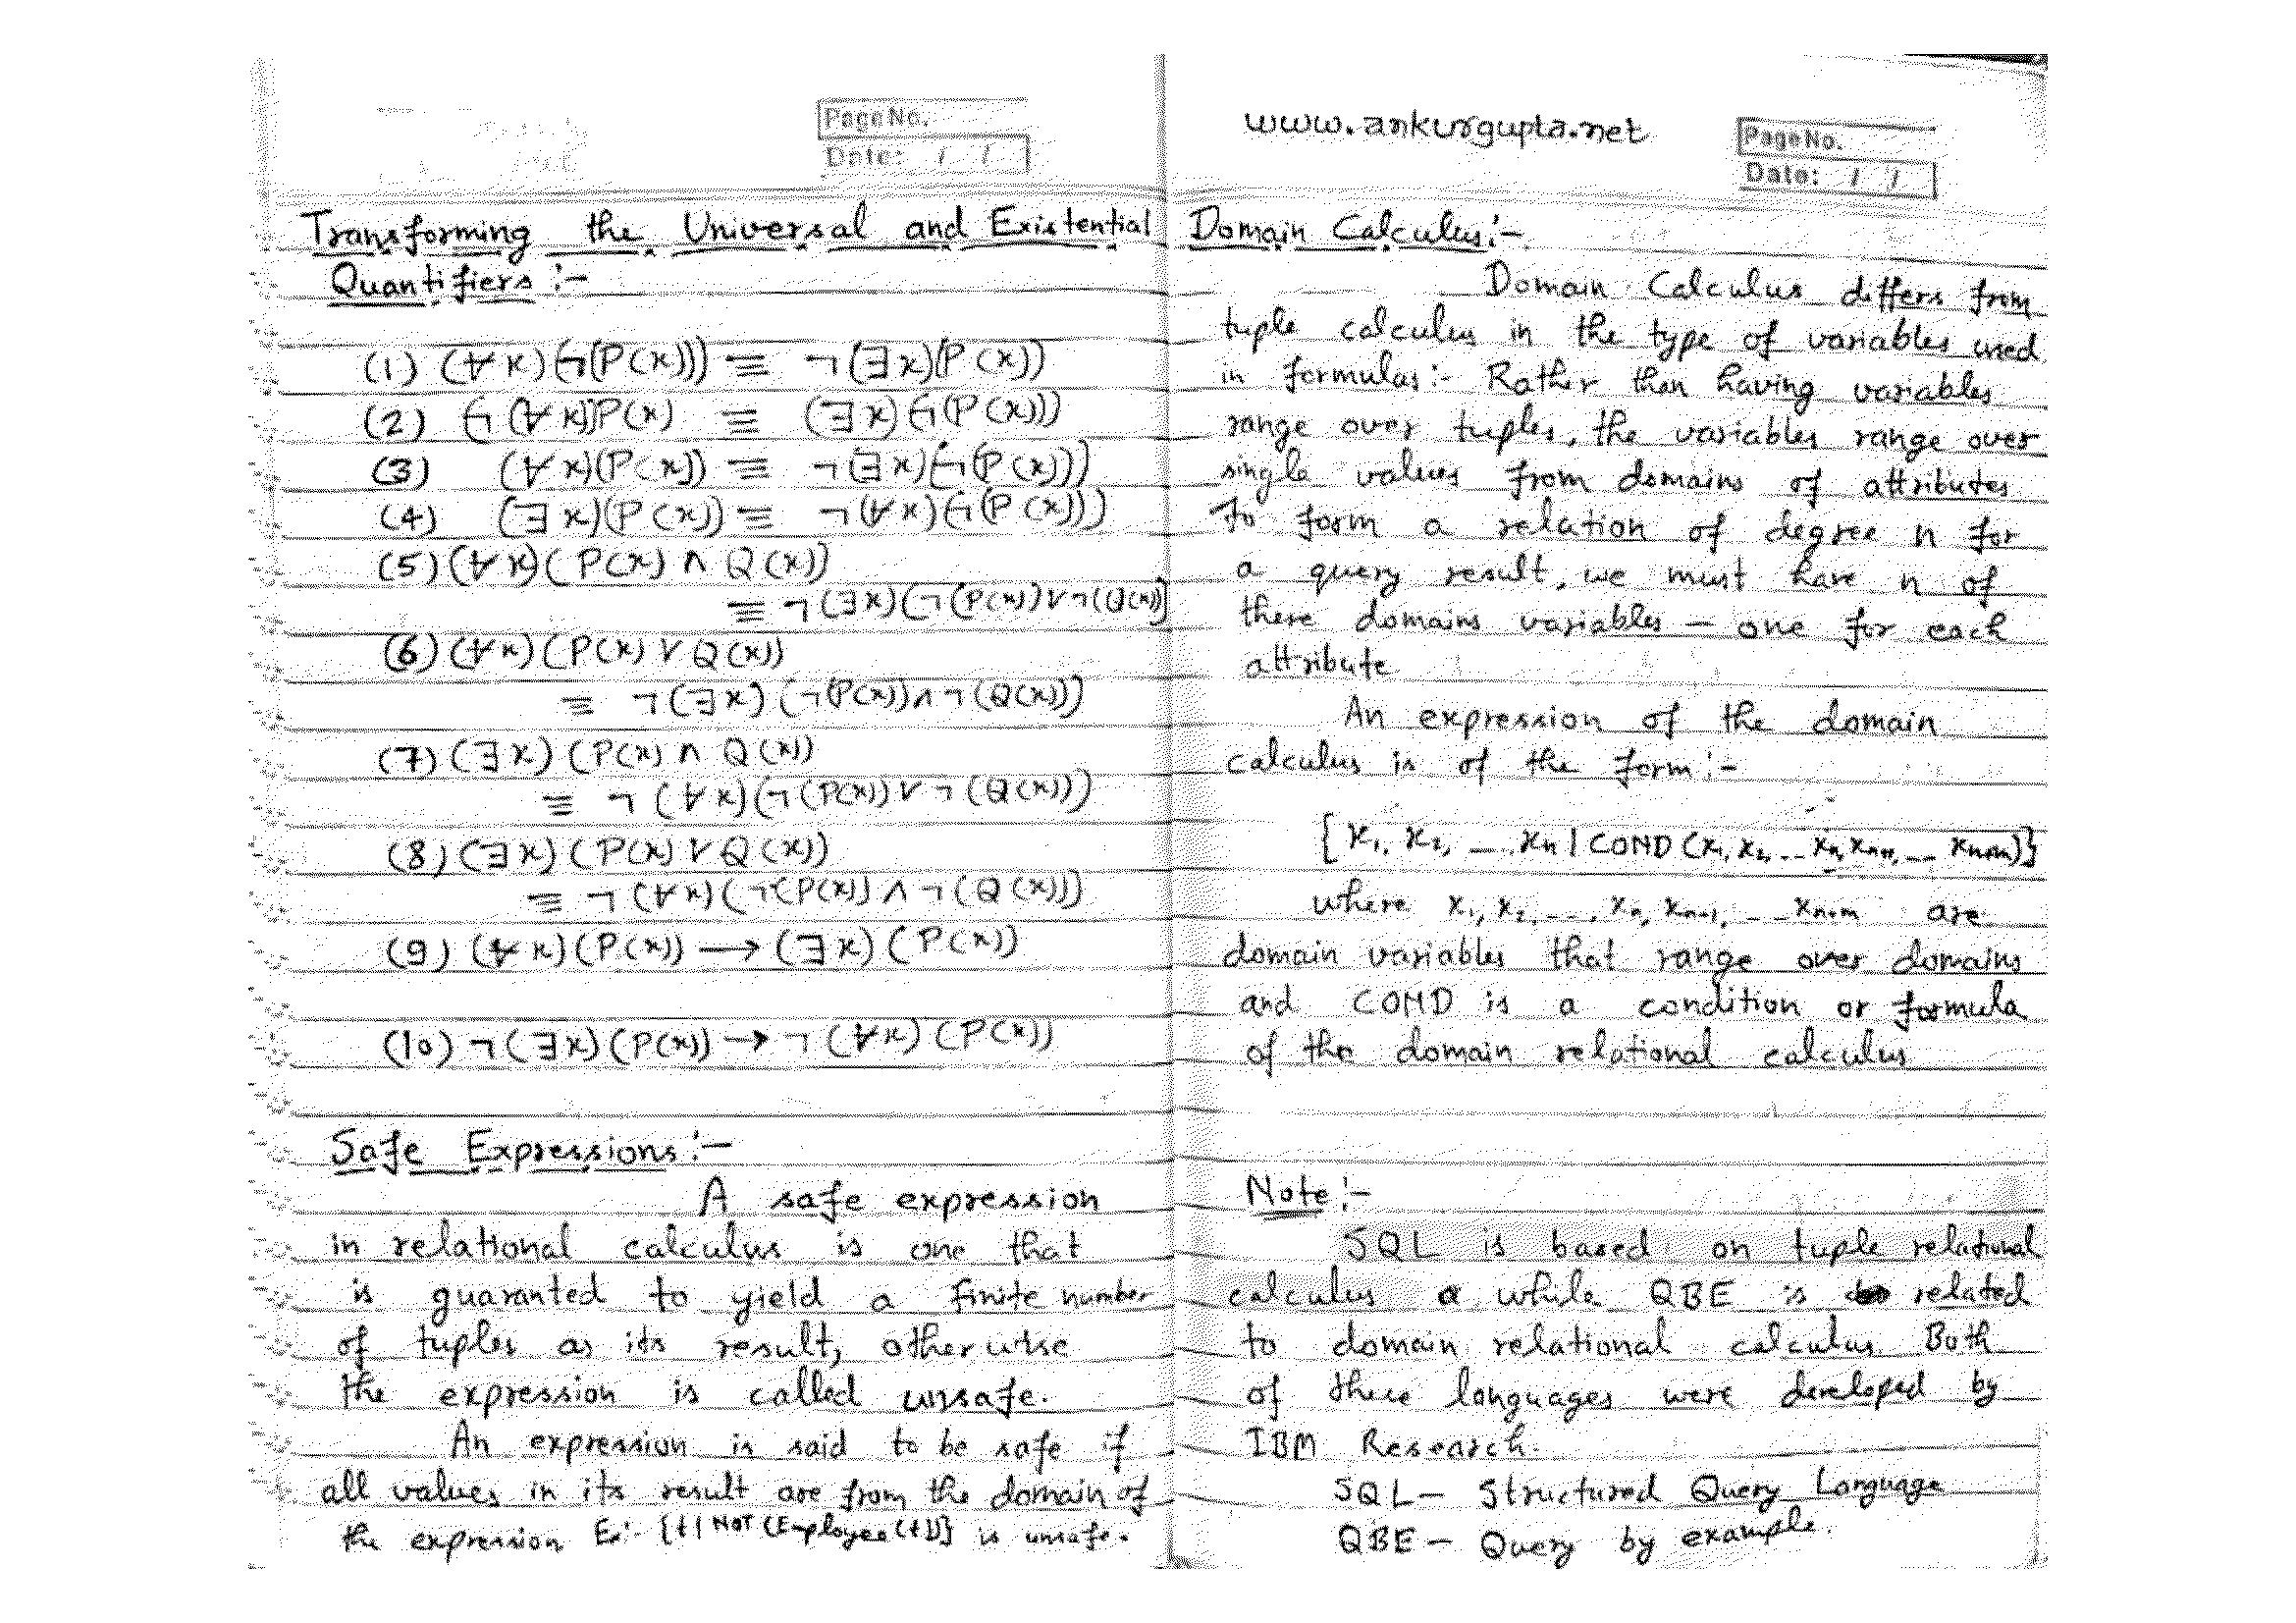 Page No.
Date: / /
Transforming the Universal and Existential
Quantifiers :-
(1) (∀x)(¬(P(x))) ≡ ¬(∃x)(P(x))
(2) (¬(∀x))P(x) ≡ (∃x)(¬(P(x)))
(3) (∀x)(P(x)) ≡ ¬(∃x)(¬(P(x)))
(4) (∃x)(P(x)) ≡ ¬(∀x)(¬(P(x)))
(5) (∀x)(P(x) ∧ Q(x))
≡ ¬(∃x)(¬(P(x)) ∨ ¬(Q(x)))
(6) (∀x)(P(x) ∨ Q(x))
≡ ¬(∃x)(¬(P(x)) ∧ ¬(Q(x)))
(7) (∃x)(P(x) ∧ Q(x))
≡ ¬(∀x)(¬(P(x)) ∨ ¬(Q(x)))
(8) (∃x)(P(x) ∨ Q(x))
≡ ¬(∀x)(¬(P(x)) ∧ ¬(Q(x)))
(9) (∀x)(P(x)) → (∃x)(P(x))
(10) ¬(∃x)(P(x)) → ¬(∀x)(P(x))
Safe Expressions :-
A safe expression
in relational calculus is one that
is guaranted to yield a finite number
of tuples as its result, otherwise
the expression is called unsafe.
An expression is said to be safe if
all values in its result are from the domain of
the expression Ex:- {t | NOT (Employee(t))} is unsafe.
www.ankurgupta.net
Page No.
Date: / /
Domain Calculus :-
Domain Calculus differs from
tuple calculus in the type of variables used
in formulas:- Rather than having variables
range over tuples, the variables range over
single values from domains of attributes
To form a relation of degree n for
a query result, we must have n of
these domains variables - one for each
attribute
An expression of the domain
calculus is of the form :-
{x₁, x₂, ... xₙ | COND (x₁, x₂, ... xₙ, xₙ₊₁, ... xₙ₊ₘ)}
where x₁, x₂, ..., xₙ, xₙ₊₁, ... xₙ₊ₘ are
domain variables that range over domains
and COND is a condition or formula
of the domain relational calculus
Note :-
SQL is based on tuple relational
calculus while QBE is related
to domain relational calculus. Both
of these languages were developed by
IBM Research.
SQL - Structured Query Language
QBE - Query by example.